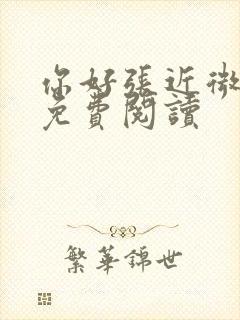 你好張近微
免費閱讀
繁華錦世